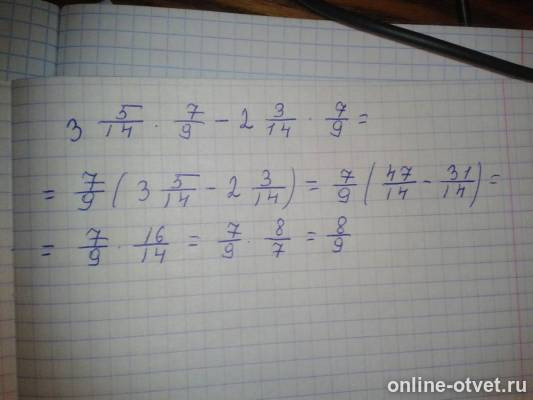 3 5/14 · 7/9 - 2 3/14 · 7/9 =
= 7/9 (3 5/14 - 2 3/14) = 7/9 (47/14 - 31/14) =
= 7/9 · 16/14 = 7/9 · 8/7 = 8/9
online-otvet.ru